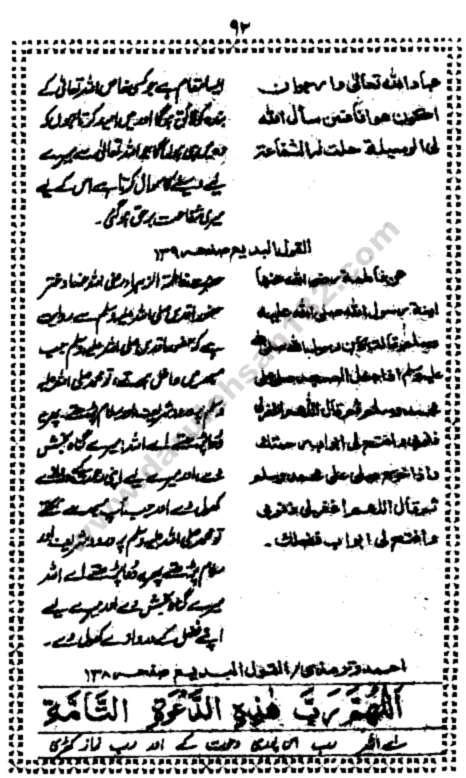 ۹۲
عباد الله تعالى وارجوان
اكون هو انا فمن سأل الله
لى الوسيلة حلت له الشفاعة
ایسا مقام ہے جو کسی خاص اللہ تعالیٰ کے
بندہ کو لائق ہوگا اور میں امید کرتا ہوں کہ
وہ میں ہی ہوں گا جو اللہ تعالیٰ سے میرے
لیے وسیلے کا سوال کرتا ہے اس کے لیے
میری شفاعت برحق ہوگئی۔
القول البديع صفحہ ۱۳۹
عن فاطمة رضى الله عنها
ابنة رسول الله صلى الله عليه
وسلم قالت كان رسول الله صلى الله
عليه وسلم اذا دخل المسجد صلى على
محمد وسلم ثم قال اللهم اغفرلى
ذنوبى وافتح لى ابواب رحمتك
واذا خرج صلى على محمد وسلم
ثم قال اللهم اغفر لى ذنوبى
وافتح لى ابواب فضلك۔
حضرت فاطمۃ الزہرا رضی اللہ عنہا دختر
حضور اقدس صلی اللہ علیہ وسلم سے روایت
ہے کہ حضور اقدس صلی اللہ علیہ وسلم جب
مسجد میں داخل ہوتے، تو محمد صلی اللہ علیہ
وسلم پر درود شریف اور سلام پڑھتے پھر یہ
دعا پڑھتے اے اللہ! میرے گناہ بخش
دے اور میرے لیے اپنی رحمت کے دروازے
کھول دے اور جب آپ مسجد سے نکلتے
تو محمد صلی اللہ علیہ وسلم پر درود شریف اور
سلام پڑھتے پھر یہ دعا پڑھتے اے اللہ
میرے گناہ بخش دے اور میرے لیے
اپنے فضل کے دروازے کھول دے۔
احمد وترمذی/القول البديع صفحہ ۱۳۸
اَللّٰهُمَّ رَبَّ هٰذِهِ الدَّعْوَةِ التَّامَّةِ
اے اللہ رب اس پوری دعوت کے اور رب نماز کھڑی